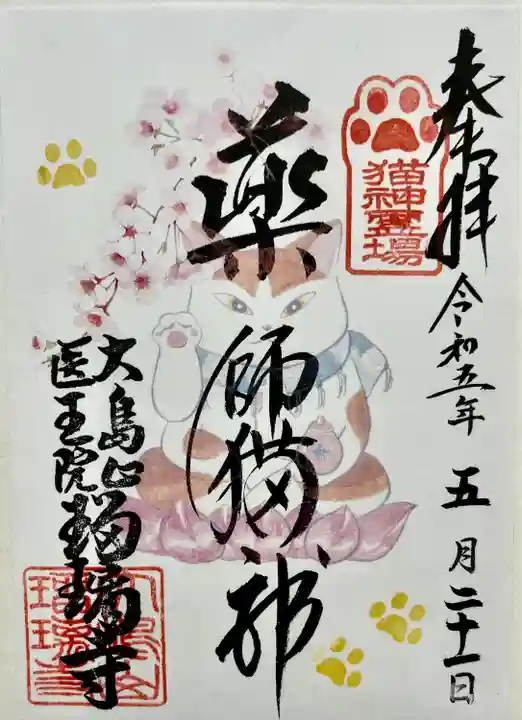 奉拝
令和五年 五月二十一日
猫神霊場
薬師猫神
大島山
医王院
瑠璃寺